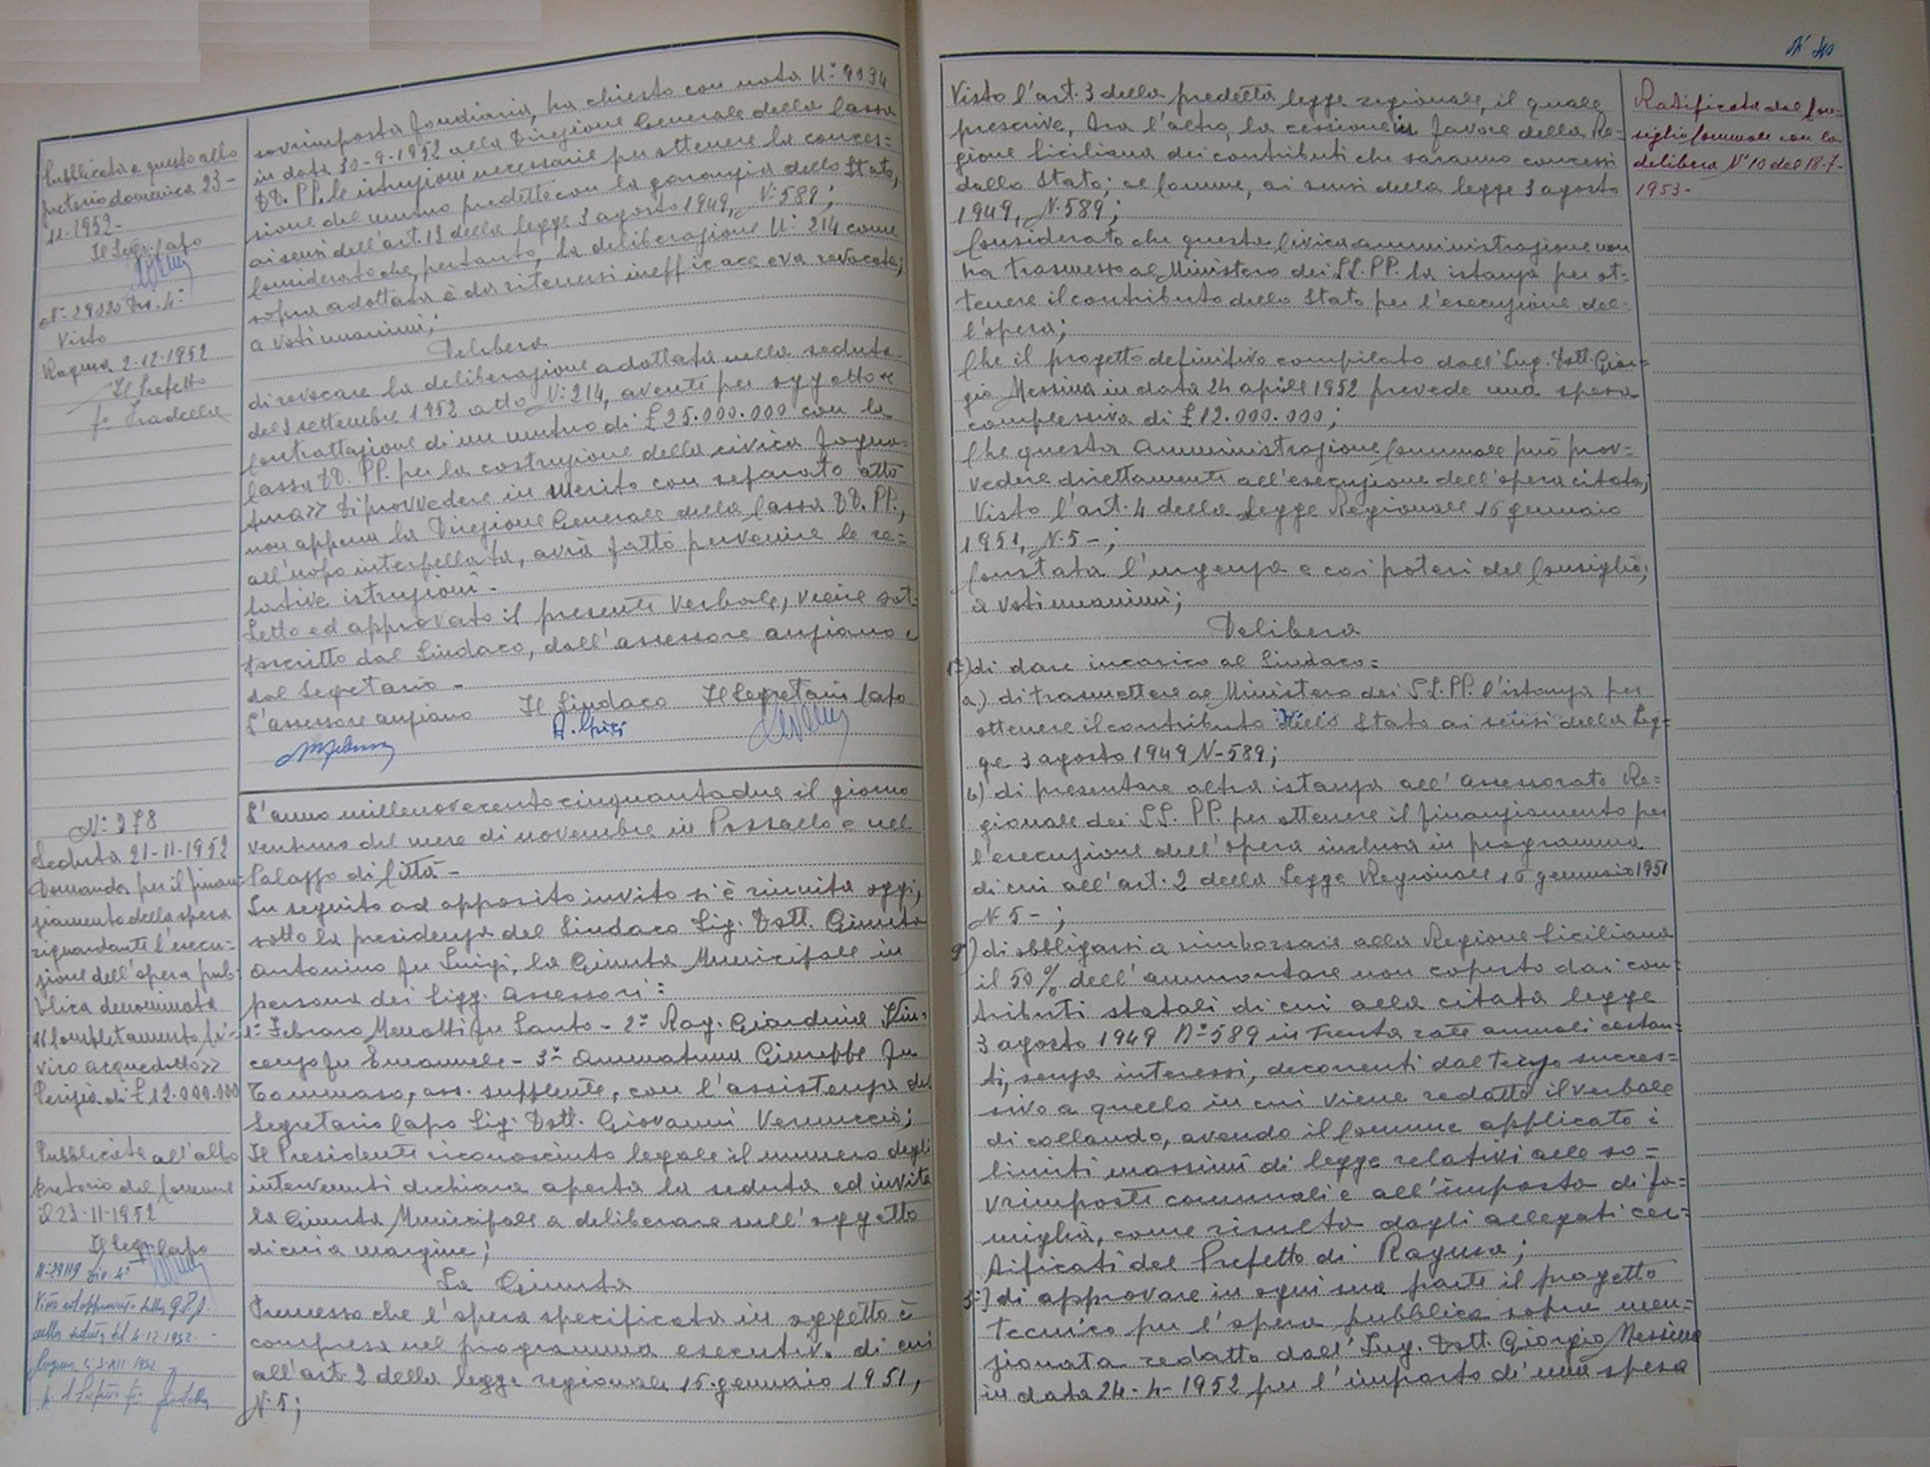 Pubblicata a questo albo
pretorio domenica 23-
11-1952-
Il Segr. Capo
N° 29020 Div. 4ª
Visto
Ragusa 2-12-1952
Il Prefetto
sovrimposta fondiaria, ha chiesto con nota N° 9034
in data 30-9-1952 alla Direzione Generale della Cassa
DD. PP. le istruzioni necessarie per ottenere la conces=
sione del mutuo predetto con la garanzia dello Stato,
ai sensi dell'art. 13 della legge 3 agosto 1949, N. 589;
Considerato che, pertanto, la deliberazione N° 214 come
sopra adottata è da ritenersi inefficace e va revocata;
a voti unanimi;
Delibera
di revocare la deliberazione adottata nella seduta
del settembre 1952 atto N° 214, avente per oggetto «
Contrattazione di un mutuo di £ 25.000.000 con la
Cassa DD. PP. per la costruzione della civica fogna=
tura» Di provvedere in merito con separato atto
non appena la Direzione Generale della Cassa DD. PP.,
all'uopo interpellata, avrà fatto pervenire le re=
lative istruzioni-
Letto ed approvato il presente verbale, viene sot=
toscritto dal Sindaco, dall'assessore anziano e
dal Segretario-
L'assessore anziano Il Sindaco Il Segretario Capo
N° 278
Seduta 21-11-1952
Domanda per il finan-
ziamento della spesa
riguardante l'esecu-
zione dell'opera pub-
blica denominata
«Completamento ci-
vico acquedotto»
Perizia di £ 12.000.000
Pubblicata all'albo
Pretorio del Comune
il 23-11-1952
Il Segr. Capo
N° 29119 Div. 4ª
Visto ed approvato dalla G.P.A.
nella seduta del 4-12-1952-
L'anno millenovecentocinquantadue il giorno
ventuno del mese di novembre in Pozzallo e nel
Palazzo di Città-
In seguito ad apposito invito si è riunita oggi,
sotto la presidenza del Sindaco Sig. Dott. Giunta
Antonino fu Luigi, la Giunta Municipale in
persona dei Sigg. Assessori:
1° Febraro Menotti fu Santo - 2° Rag. Giardina Vin-
cenzo fu Emanuele - 3° Ammatuna Giuseppe fu
Tommaso, ass. supplente, con l'assistenza del
Segretario Capo Sig. Dott. Giovanni Vernuccio;
Il Presidente riconosciuto legale il numero degli
intervenuti dichiara aperta la seduta ed invita
la Giunta Municipale a deliberare sull'oggetto
di cui a margine;
La Giunta
Premesso che l'opera specificata in oggetto è
compresa nel programma esecutivo di cui
all'art. 2 della legge regionale 15 gennaio 1951,
N. 5;
Visto l'art. 3 della predetta legge regionale, il quale
prescrive, tra l'altro, la cessione in favore della Re-
gione Siciliana dei contributi che saranno concessi
dallo Stato; al Comune, ai sensi della legge 3 agosto
1949, N. 589;
Considerato che questa Civica amministrazione non
ha trasmesso al Ministero dei LL. PP. la istanza per ot-
tenere il contributo dello Stato per l'esecuzione del-
l'opera;
Che il progetto definitivo compilato dall'Ing. Dott. Gior-
gio Messina in data 24 aprile 1952 prevede una spesa
complessiva di £ 12.000.000;
Che questa Amministrazione Comunale può prov=
vedere direttamente all'esecuzione dell'opera citata;
Visto l'art. 4 della Legge Regionale 15 gennaio
1951, N. 5-;
Constata l'urgenza e coi poteri del Consiglio;
a voti unanimi;
Delibera
1°) di dare incarico al Sindaco=
a) di trasmettere al Ministero dei LL. PP. l'istanza per
ottenere il contributo dello Stato ai sensi della Leg=
ge 3 agosto 1949 N-589;
b) di presentare altra istanza all'Assessorato Re=
gionale dei LL. PP. per ottenere il finanziamento per
l'esecuzione dell'opera inclusa in programma
di cui all'art. 2 della Legge Regionale 15 gennaio 1951
N 5-;
2°) di obbligarsi a rimborsare alla Regione Siciliana
il 50% dell'ammontare non coperto dai con=
tributi statali di cui alla citata legge
3 agosto 1949 N° 589 in trenta rate annuali costan=
ti, senza interessi, decorrenti dal terzo succes=
sivo a quello in cui viene redatto il verbale
di collaudo, avendo il Comune applicato i
limiti massimi di legge relativi alle so=
vrimposte comunali e all'imposta di fa=
miglia, come risulta dagli allegati cer=
tificati del Prefetto di Ragusa;
3°) di approvare in ogni sua parte il progetto
tecnico per l'opera pubblica sopra men=
zionata redatto dall'Ing. Dott. Giorgio Messina
in data 24-4-1952 per l'importo di una spesa
Ratificata dal Con-
siglio Comunale con la
delibera N° 10 del 18-7-
1953-